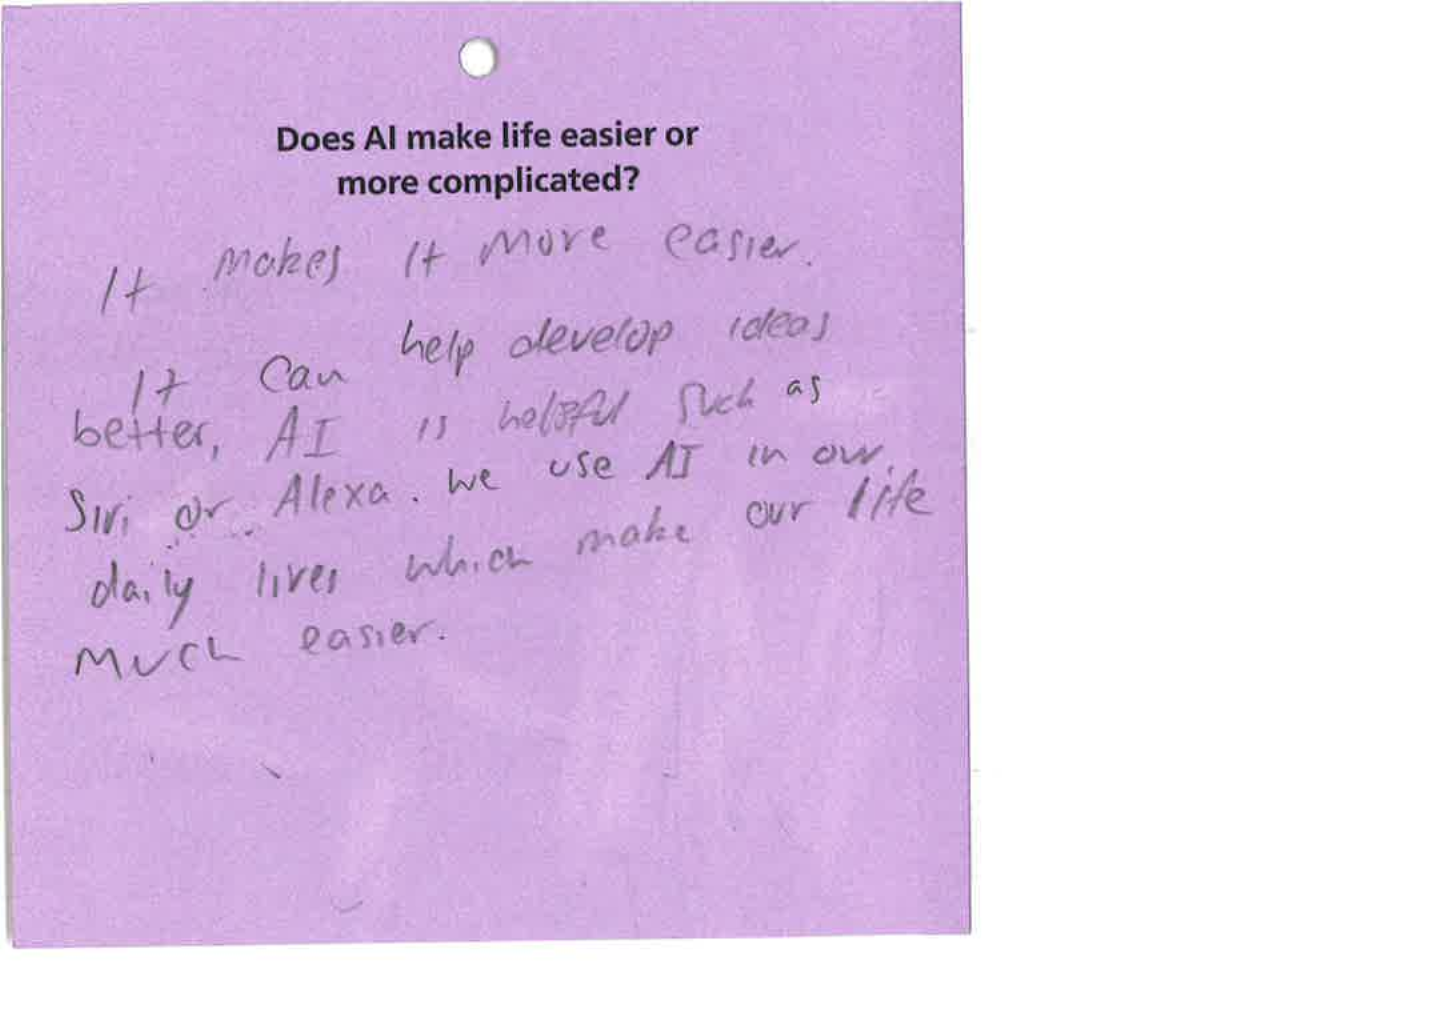 Does AI make life easier or
more complicated?
It makes it more easier.
It can help develop ideas
better, AI is helpful such as
Siri or Alexa. we use AI in our
daily lives which make our life
much easier.